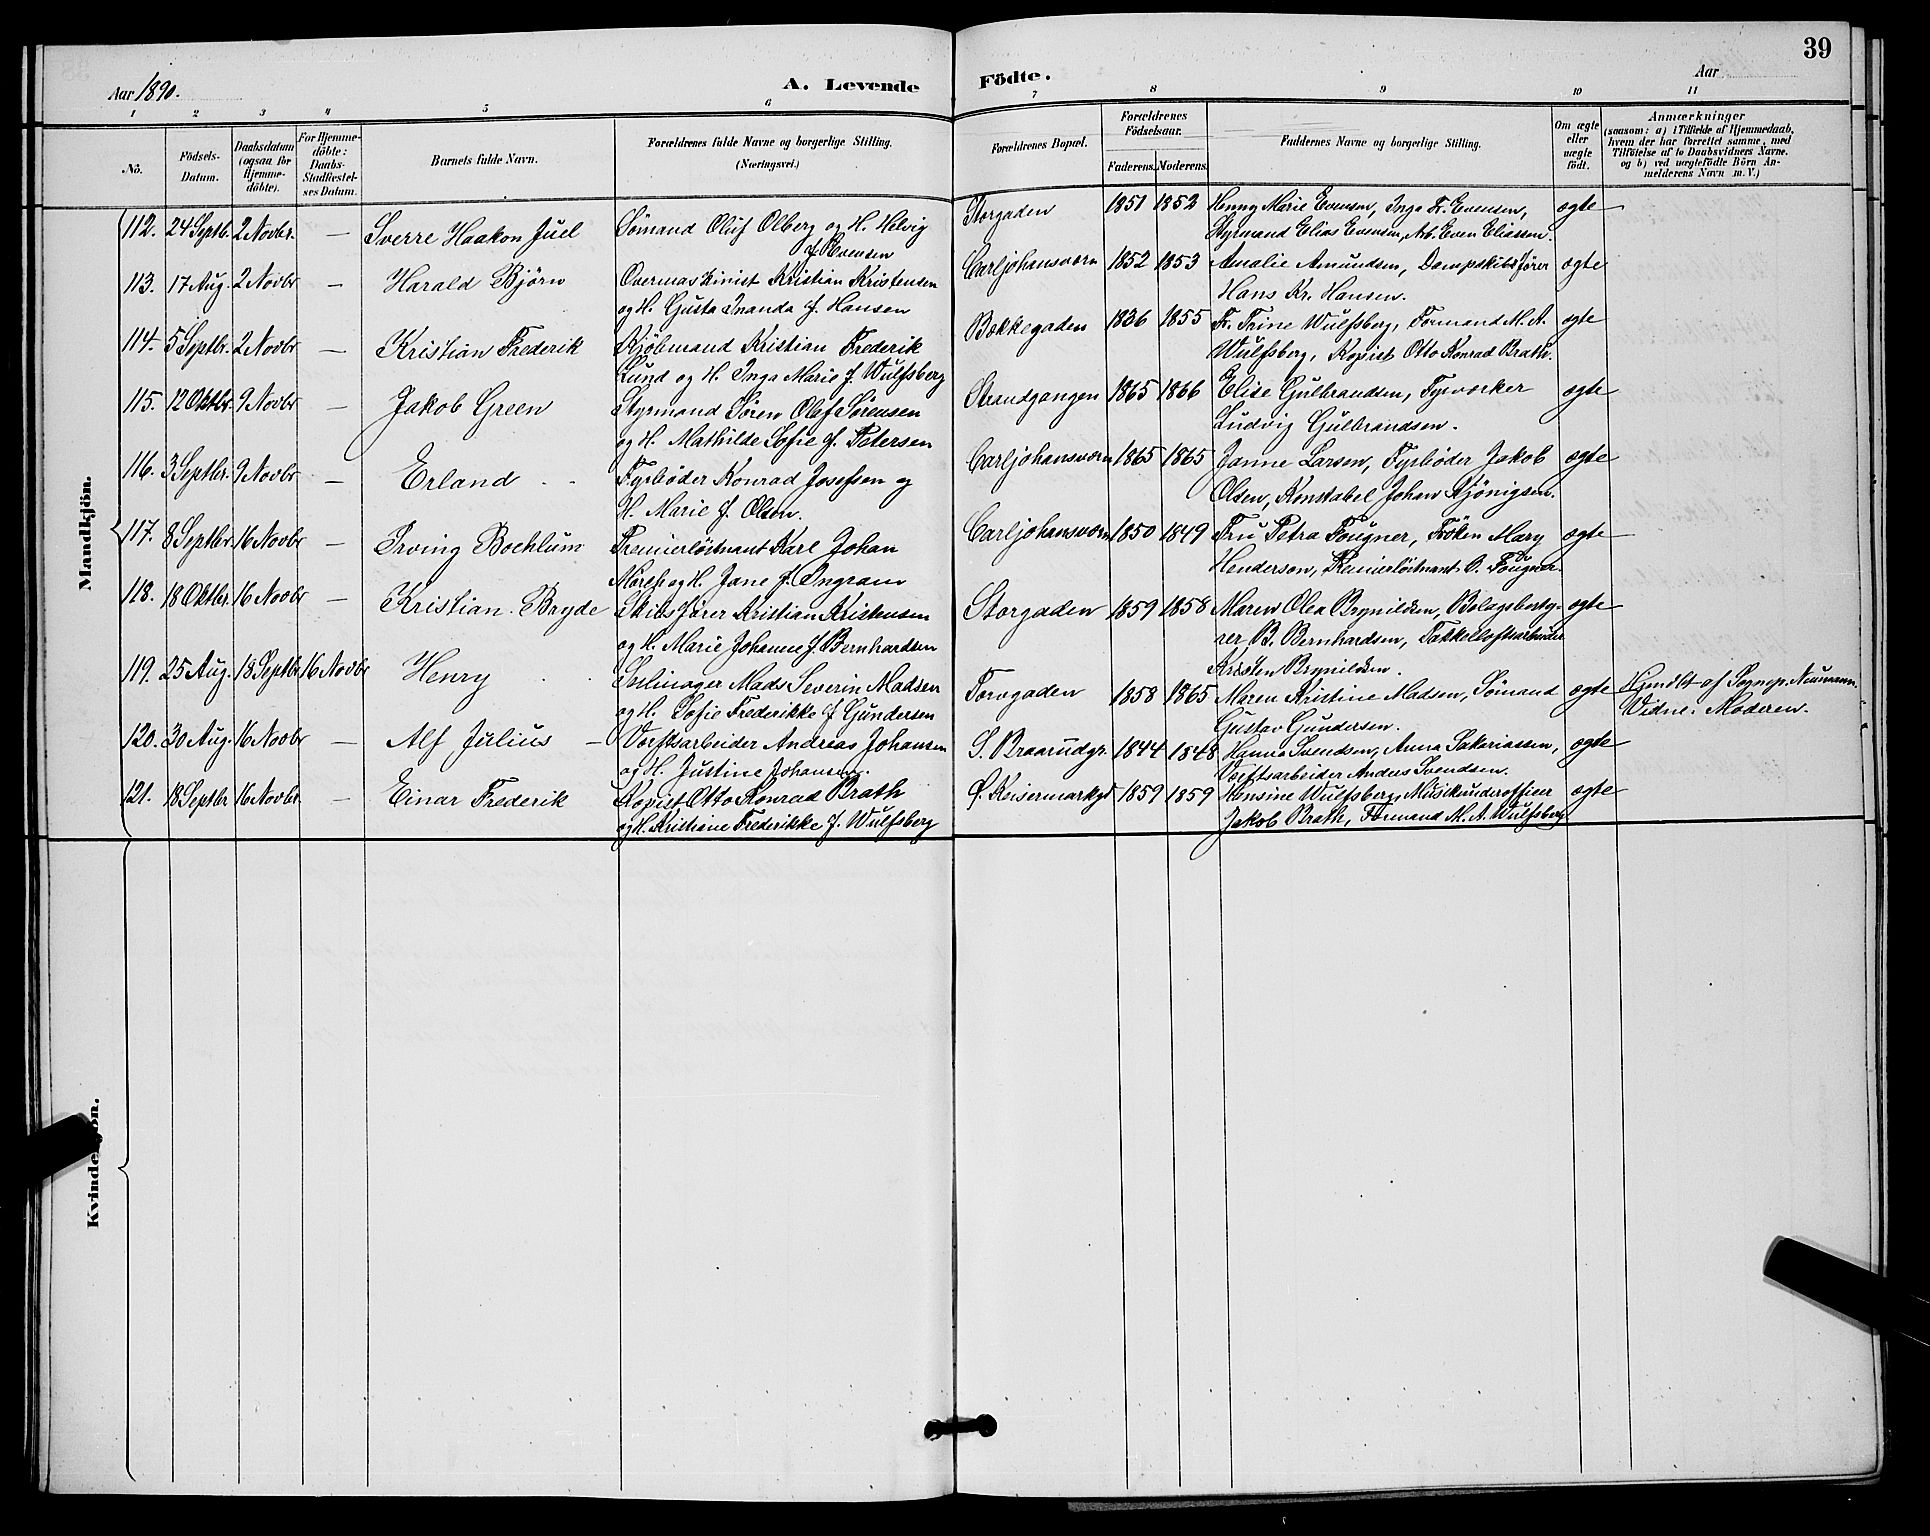 39
Aar 1890.
A. Levende
Födte.
Aar
1 2 3 4 5 6 7 8 9 10 11
No.
Födsels-Datum.
Daabsdatum (ogsaa for Hjemme-döbte).
For Hjemme-döbte: Daabs-Stadfæstel-ses Datum.
Barnets fulde Navn.
Forældrenes fulde Navne og borgerlige Stilling. (Næringsvei.)
Forældrenes Bopæl.
Forældrenes Födselsaar.
Faderens. Moderens.
Faddernes Navne og borgerlige Stilling.
Om ægte eller uægte födt.
Anmærkninger (saasom: a) i Tilfælde af Hjemmedaab, hvem der har forrettet samme, med Tilföielse af to Daabsvidners Navne. og b) ved uægtefödte Börn An-melderens Navn m. V.)
Mandkjön.
112. 24 Septb. 2 Novbr. — Sverre Haakon Juel Sømand Oluf Olberg og H. Helvig Storgaden 1851 1852 Henny Marie Evensen, Inga Fr. Evensen, ægte
f. Evensen Styrmand Elias Evensen, Arb. Even Eliassen.
113. 17 Aug. 2 Novbr — Harald Björn Overmaskinist Kristian Kristensen Carljohansværn 1852 1853 Amalie Amundsen, Dampskibsfører ægte
og H. Gusta Inanda f. Hansen Hans Kr. Hansen.
114. 5 Septbr. 2 Novbr — Kristian Frederik Kjöbmand Kristian Frederik Bækkegaden 1836 1855 Fr. Trine Wulfsberg, Formand M. A. ægte
Lund og H. Inga Marie f. Wulfsberg Wulfsberg, Kopist Otto Konrad Brath.
115. 12 Oktbr. 9 Novbr — Jakob Green Styrmand Sören Olaf Sörensen Strandgangen 1865 1866 Elise Gulbrandsen, Fyrvorker ægte
og H. Mathilde Sofie f. Petersen Ludvig Gulbrandsen.
116. 3 Septbr. 9 Novbr — Erland Fyrbøder Konrad Josefsen og Carljohansværn 1865 1865 Janne Larsen, Fyrbøder Jakob ægte
H. Marie f. Olsen. Olsen, Konstabel Johan Kjönigsen.
117. 8 Septbr 16 Novbr — Irving Bochlum Premierløitnant Karl Johan Carljohansværn 1850 1849 Fru Petra Fougner, Frøken Mary ægte
og H. Jane f. Ingram Henderson, Premierløitnant O. Fougner.
118. 18 Oktbr. 16 Novbr — Kristian Bryde Skibsfører Kristian Kristensen Storgaden 1859 1858 Maren Olea Brynildsen, Bolagsbesty- ægte
og H. Marie Johanne f. Bernhardsen rer B. Bernhardsen, Takkelloftsarbeider
Kristen Brynildsen.
119. 25 Aug. 18 Septbr 16 Novbr Henry Seilmager Mads Severin Madsen Torvgaden 1858 1865 Maren Kristine Madsen, Sømand ægte Hjemdbt af Sognepr. Neumann.
og H. Sofie Frederikke f. Gundersen Gustav Gundersen. Vidne: Moderen.
120. 30 Aug. 16 Novbr — Alf Julius — Værftsarbeider Andreas Johansen S. Braarudgt. 1844 1848 Hanna Svendsen, Anna Sakariassen, ægte
og H. Justine Johansen. Værftsarbeider Anders Svendsen.
121. 18 Septbr 16 Novbr. — Einar Frederik Kopist Otto Konrad Brath Ø. Keisermarkgt 1859 1859 Hensine Wulfsberg, Musikunderofficer ægte
og H. Kristiane Frederikke f. Wulfsberg Jakob Brath, Formand M. A. Wulfsberg
Kvindekjön.